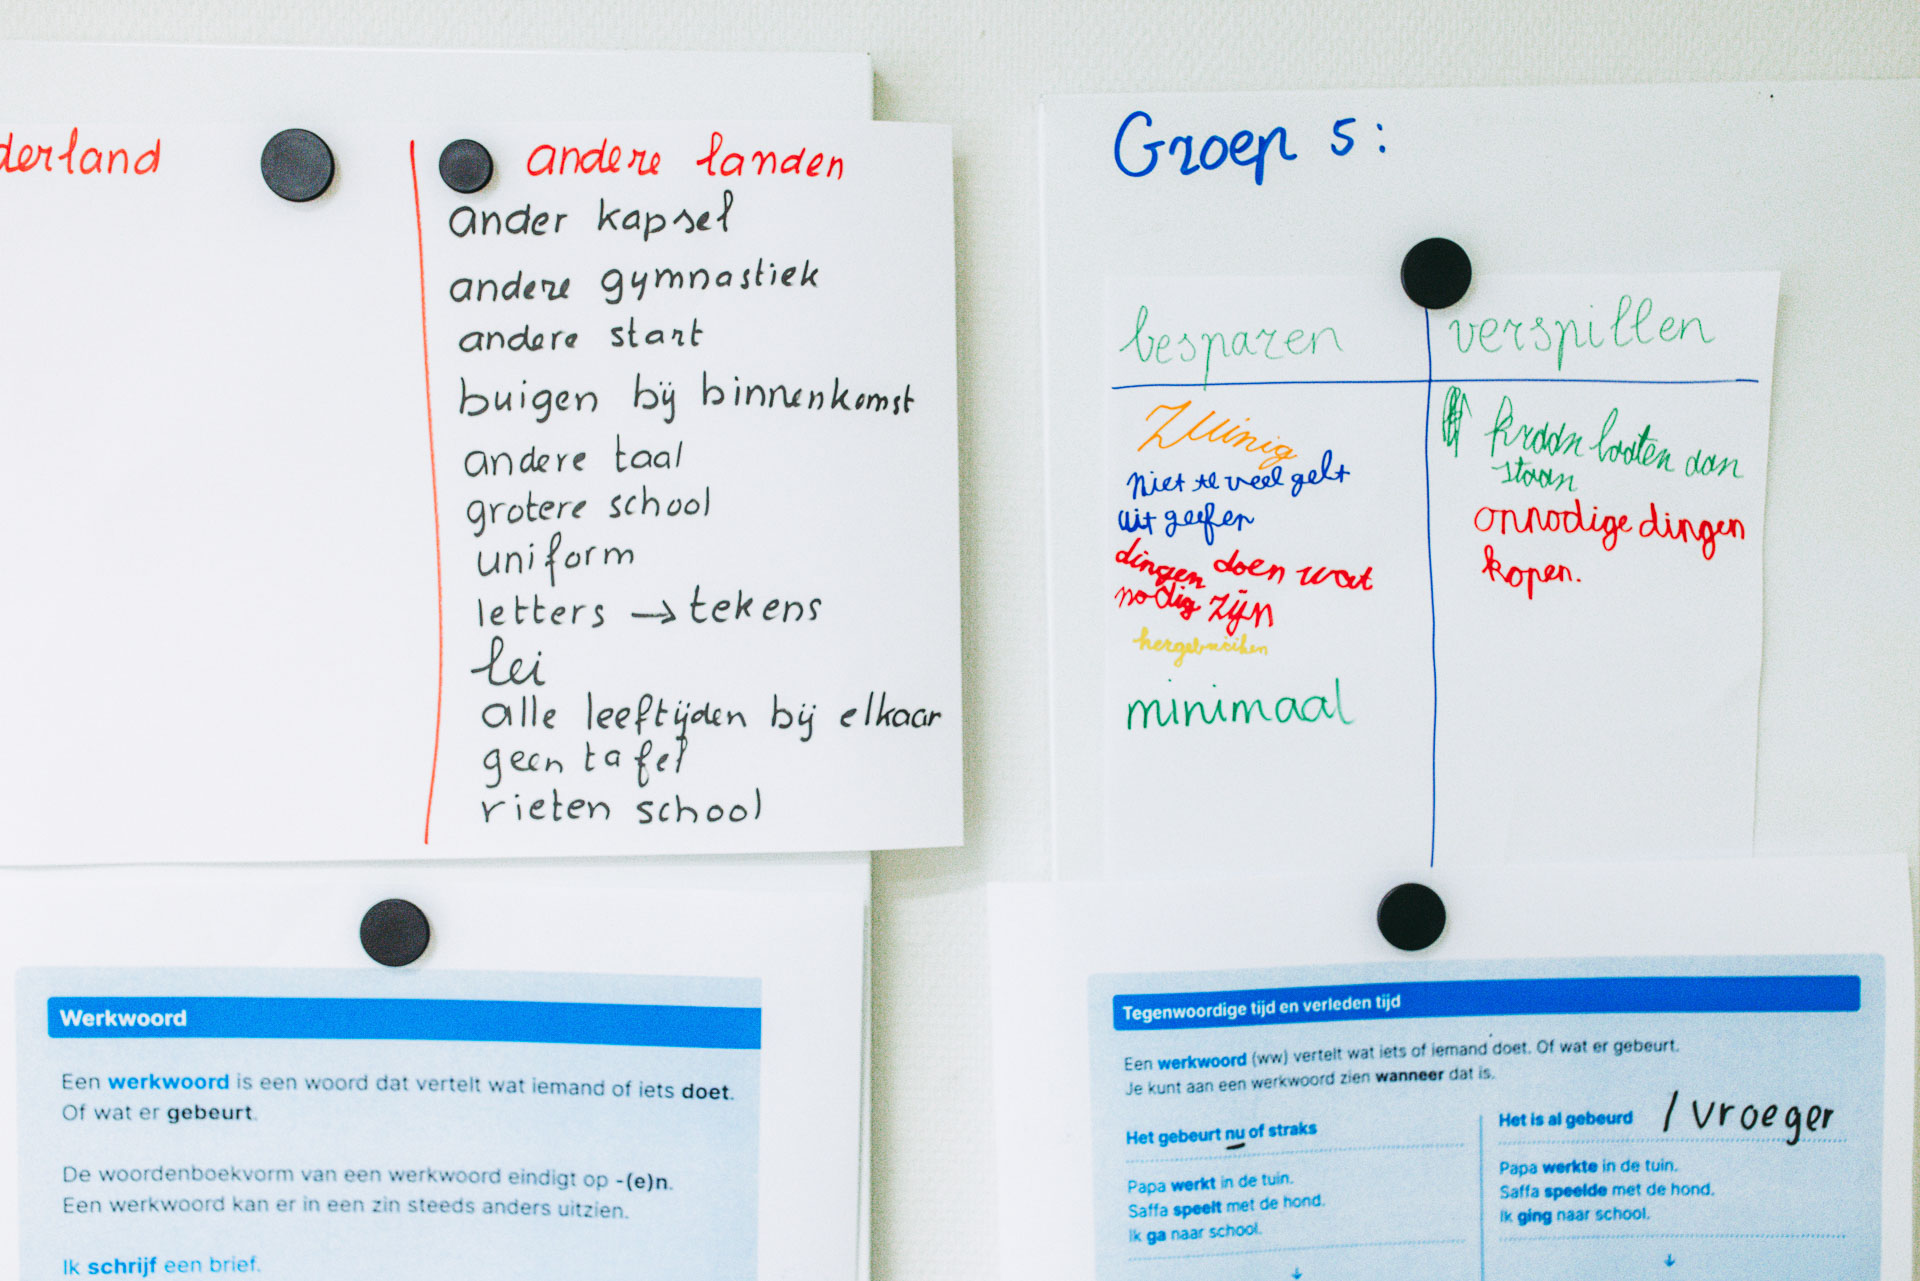 derland
andere landen
ander kapsel
andere gymnastiek
andere start
buigen bij binnenkomst
andere taal
grotere school
uniform
letters → tekens
lei
alle leeftijden bij elkaar
geen tafel
rieten school
Groep 5:
besparen
zuinig
niet te veel gelt
uit geefen
dingen doen wat
nodig zijn
hergebruiken
minimaal
verspillen
kraan laaten aan
staan
onnodige dingen
kopen.
Werkwoord
Een werkwoord is een woord dat vertelt wat iemand of iets doet.
Of wat er gebeurt.
De woordenboekvorm van een werkwoord eindigt op -(e)n.
Een werkwoord kan er in een zin steeds anders uitzien.
Ik schrijf een brief.
Tegenwoordige tijd en verleden tijd
Een werkwoord (ww) vertelt wat iets of iemand doet. Of wat er gebeurt.
Je kunt aan een werkwoord zien wanneer dat is.
Het gebeurt nu of straks
Papa werkt in de tuin.
Saffa speelt met de hond.
Ik ga naar school.
↓
Het is al gebeurd / vroeger
Papa werkte in de tuin.
Saffa speelde met de hond.
Ik ging naar school.
↓